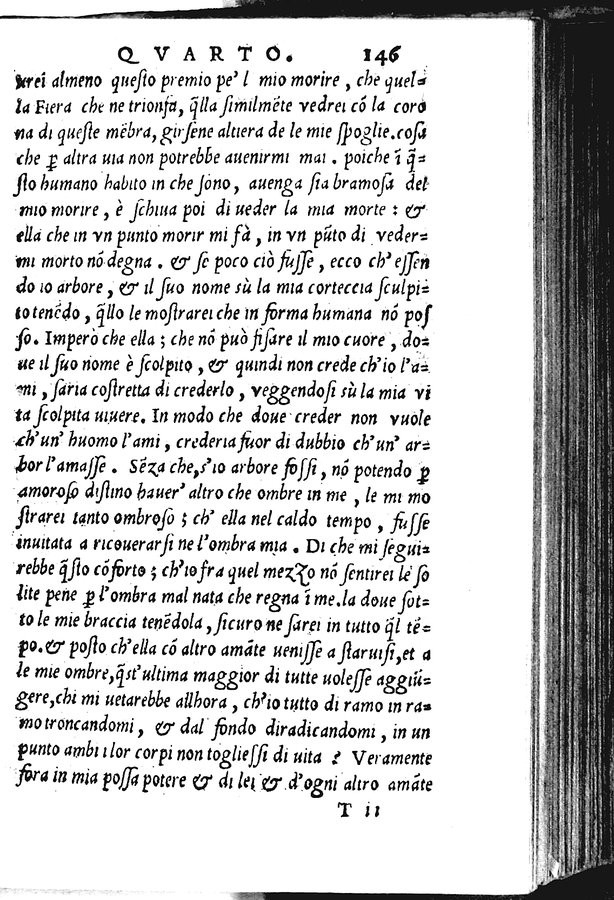 QVARTO. 146
urei almeno questo premio pe' l mio morire, che quel=
la Fiera che ne trionfa, q̃lla similmẽte vedrei cõ la coro
na di queste mẽbra, girsene altiera de le mie spoglie.cosa
che ꝑ altra uia non potrebbe auenirmi mai. poiche ĩ q̃=
sto humano habito in che sono, auenga sia bramosa del
mio morire, è schiua poi di ueder la mia morte: &
ella che in vn punto morir mi fà, in vn pũto di veder=
mi morto nõ degna. & se poco ciò fusse, ecco ch'essen
do io arbore, & il suo nome sù la mia corteccia sculpi=
to tenẽdo, q̃llo le mostrarei che in forma humana nõ pos
so. Imperò che ella; che nõ può fisare il mio cuore, do=
ue il suo nome è scolpito, & quindi non crede ch'io l'a=
mi, saria costretta di crederlo, veggendosi sù la mia vi
ta scolpita uiuere. In modo che doue creder non vuole
ch'un' huomo l'ami, crederia fuor di dubbio ch'un' ar=
bor l'amasse. Sẽza che,s'io arbore fossi, nõ potendo ꝑ
amoroso distino hauer' altro che ombre in me, le mi mo
strarei tanto ombroso; ch' ella nel caldo tempo, fusse
inuitata a ricouerarsi ne l'ombra mia. Di che mi segui=
rebbe q̃sto cõforto; ch'io fra quel mezzo nõ sentirei le so
lite pene ꝑ l'ombra mal nata che regna ĩ me.la doue sot=
to le mie braccia tenẽdola, sicuro ne sarei in tutto q̃l tẽ=
po.& posto ch'ella cõ altro amãte uenisse a staruisi,et a
le mie ombre,q̃st'ultima maggior di tutte uolesse aggiũ=
gere,chi mi uetarebbe allhora, ch'io tutto di ramo in ra=
mo troncandomi, & dal fondo diradicandomi, in un
punto ambi i lor corpi non togliessi di uita ? Veramente
fora in mia possa potere & di lei & d'ogni altro amãte
T ii